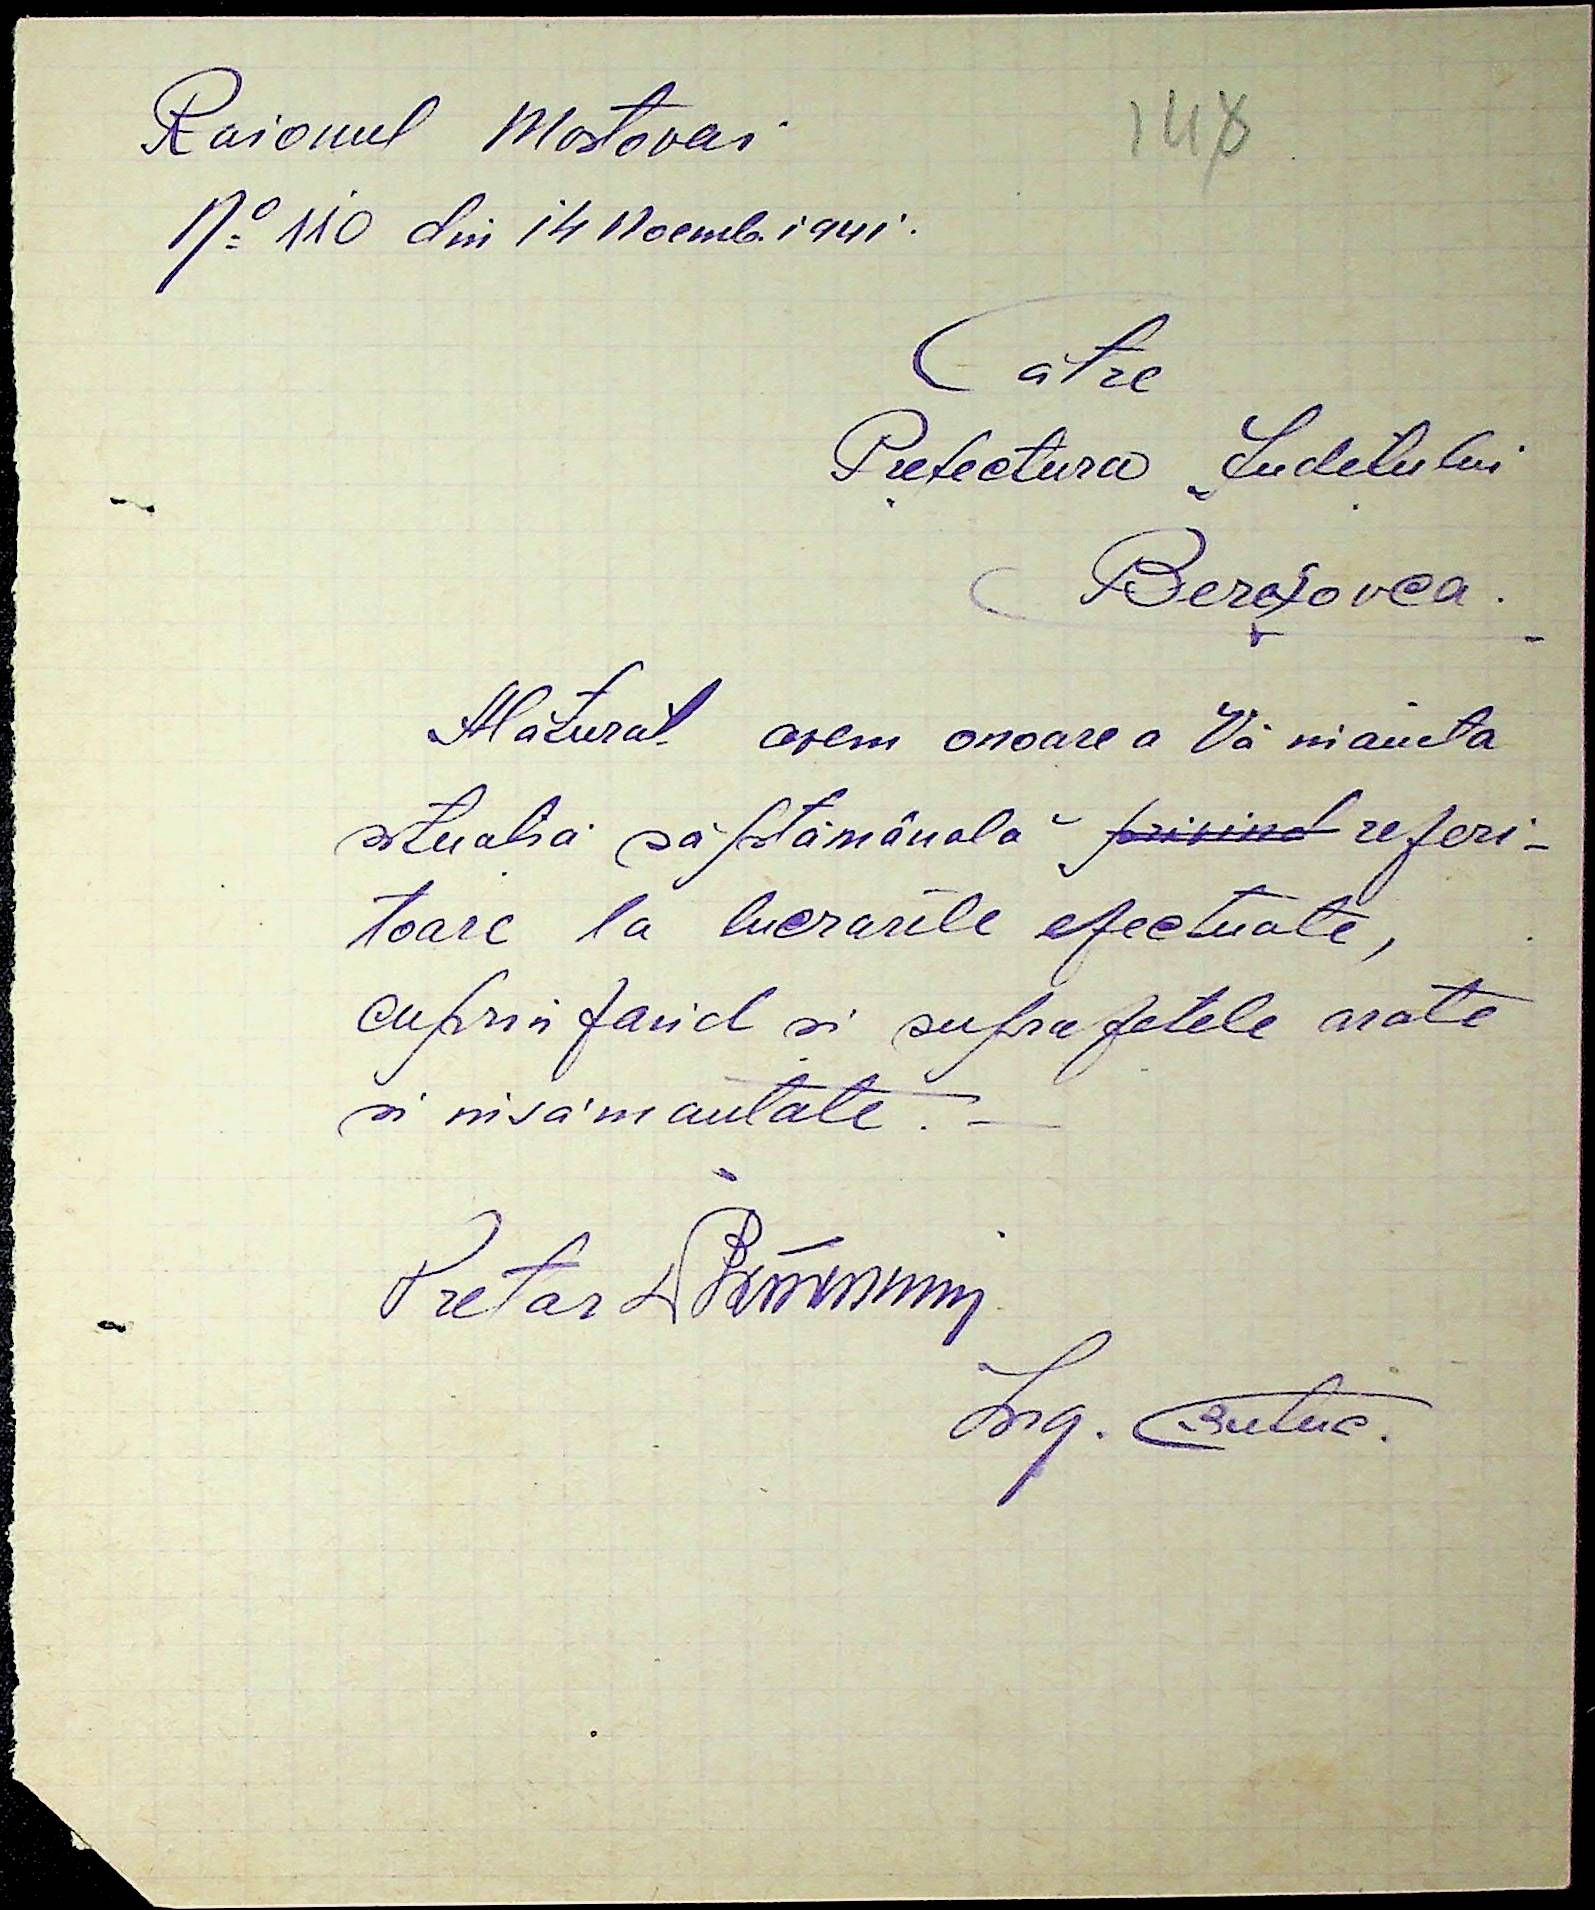 Raionul Mostovoi
148
No 110 din 14 Noemb. 1941.
Către
Prefectura Județului
Berezovca.
Alăturat avem onoarea Vă nainta
situatia săptămânală privind referi-
toare la lucrarile efectuate,
cuprinzand si suprafetele arate
si nisamantate. –
Pretor
Ing. Butuc.